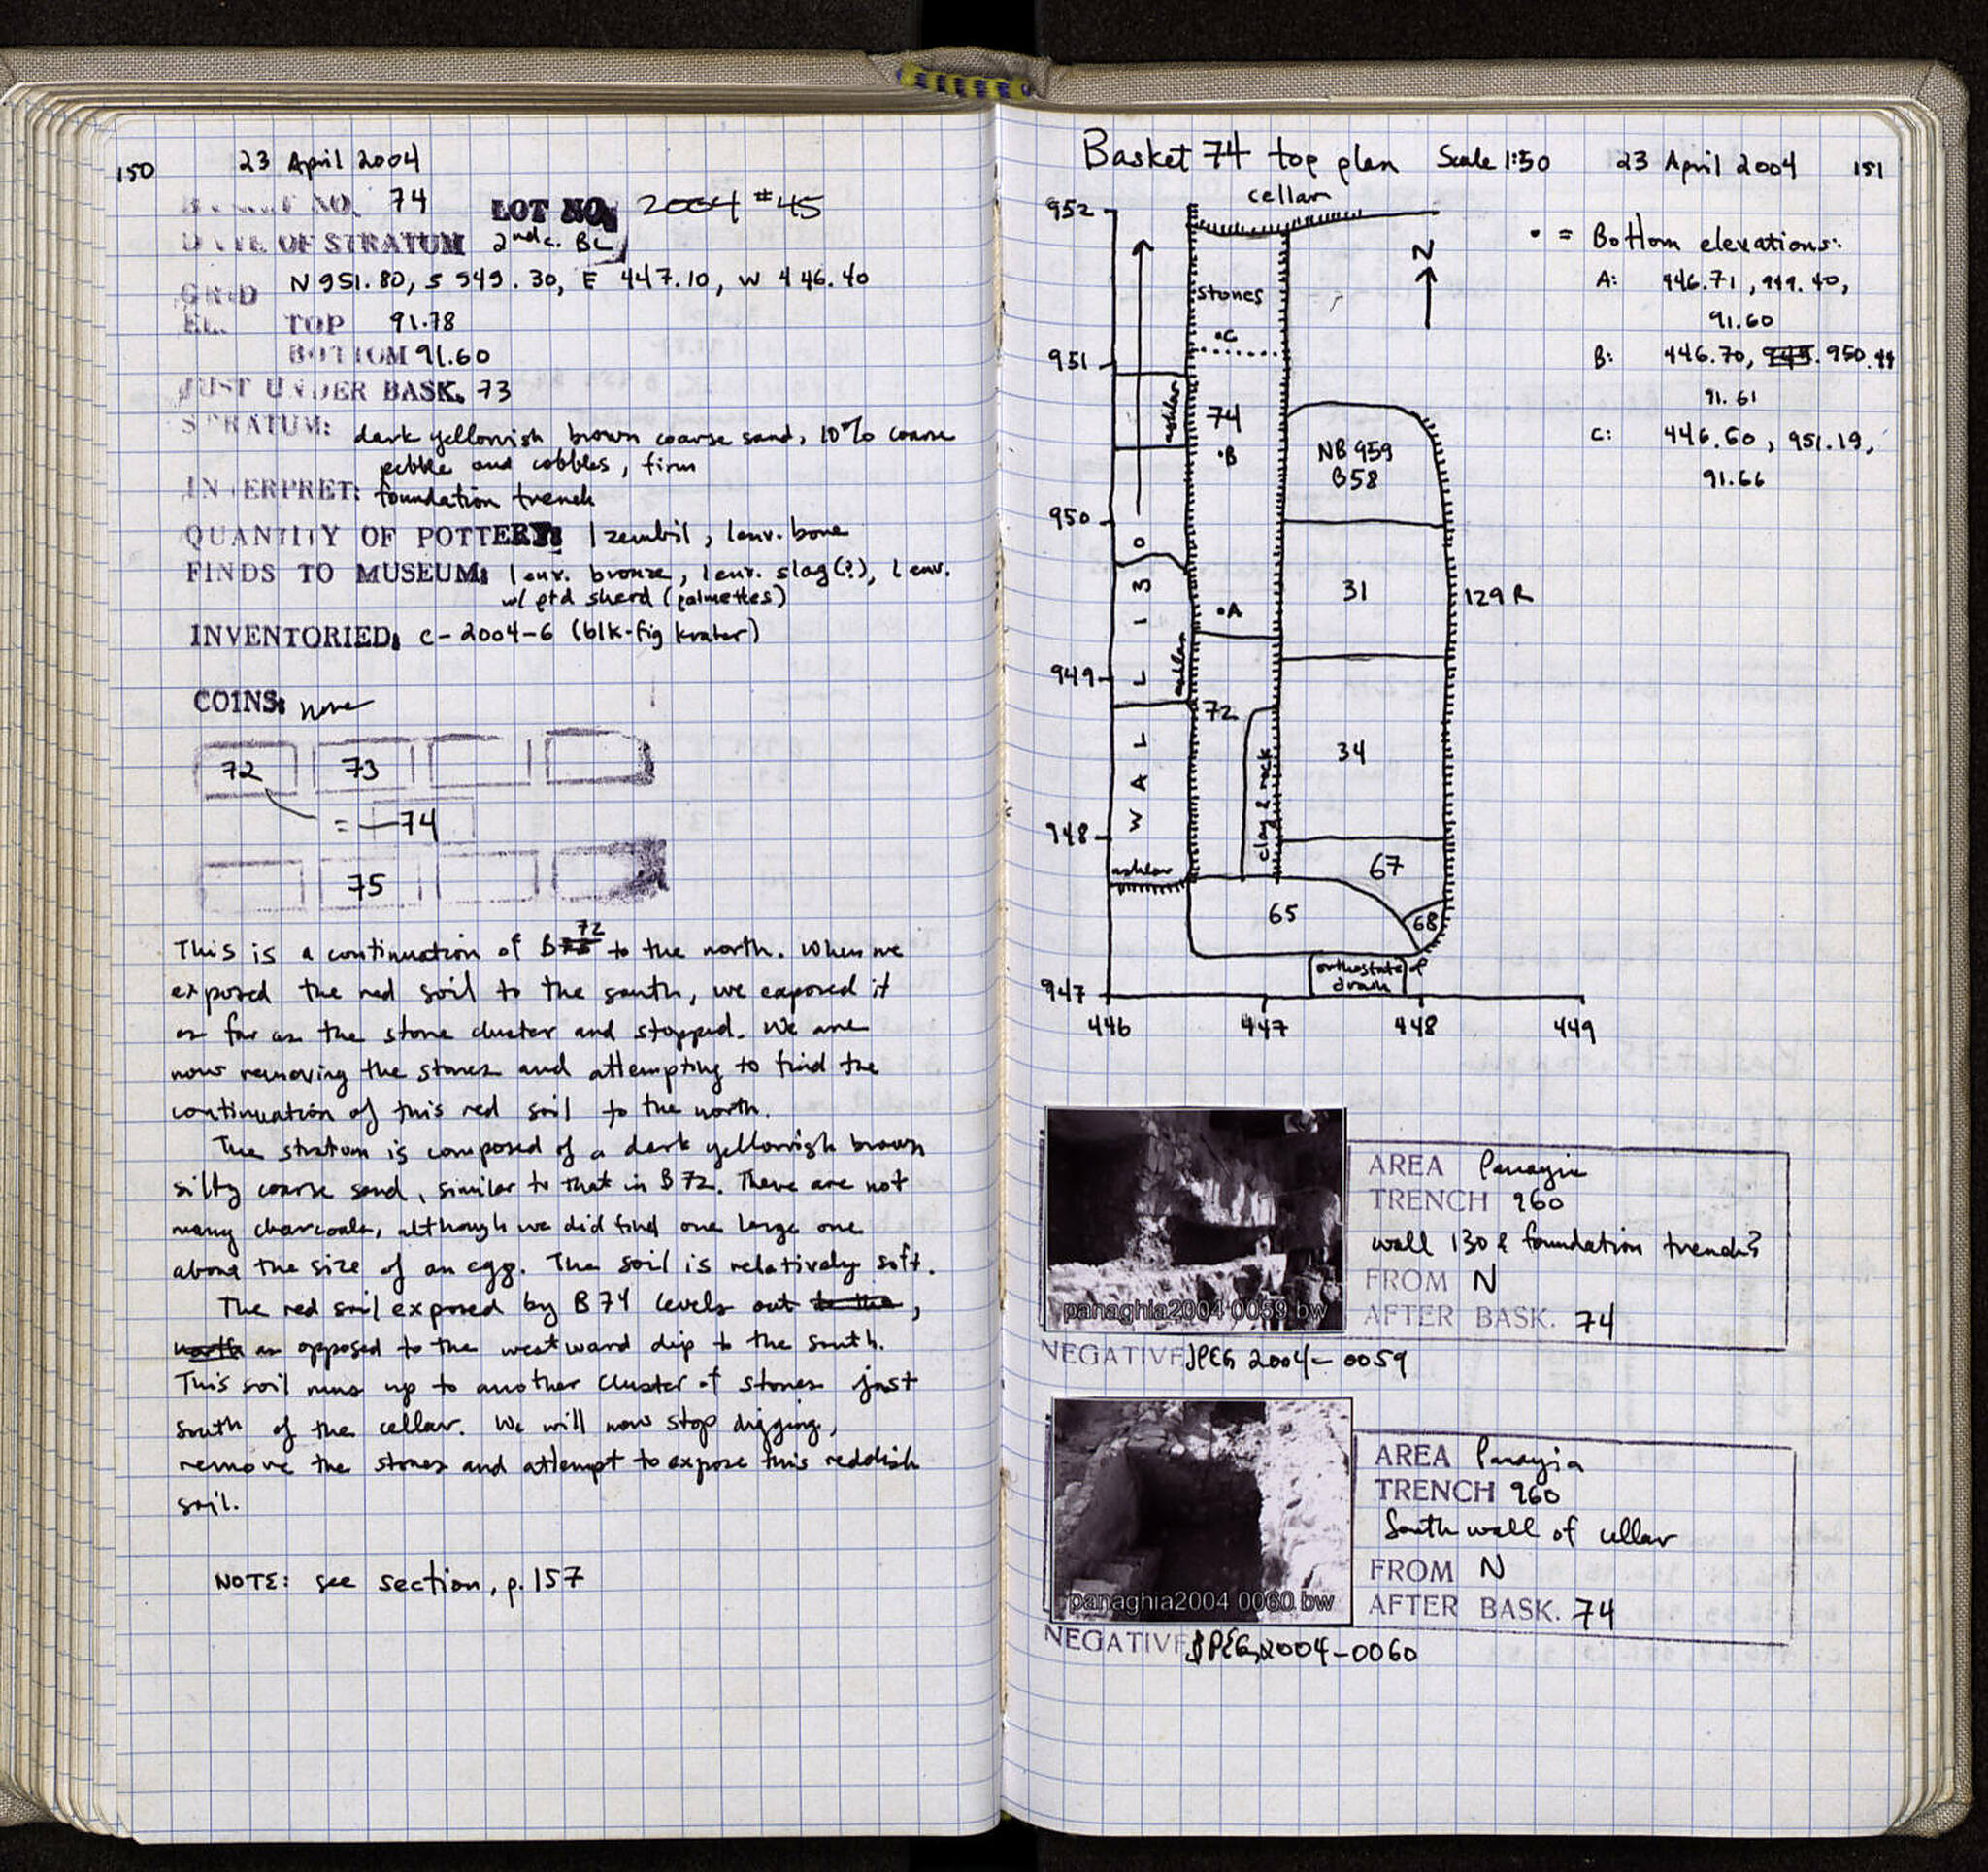 150
23 April 2004
BASKET NO. 74 LOT NO. 2004 #45
DATE OF STRATUM 2nd c. BC
GRID N 951.80, S 949.30, E 447.10, W 446.40
EL. TOP 91.78
BOTTOM 91.60
JUST UNDER BASK. 73
STRATUM: dark yellowish brown coarse sand, 10% coarse
pebble and cobbles, firm
INTERPRET: foundation trench
QUANTITY OF POTTERY: 1 zembil, 1 env. bone
FINDS TO MUSEUM: 1 env. bronze, 1 env. slag(?), 1 env.
w/ ptd sherd (palmettes)
INVENTORIED: C-2004-6 (blk-fig krater)
COINS: none
72 73
= 74
75
This is a continuation of B 72 to the north. When we
exposed the red soil to the south, we exposed it
as far as the stone cluster and stopped. We are
now removing the stones and attempting to find the
continuation of this red soil to the north.
The stratum is composed of a dark yellowish brown
silty coarse sand, similar to that in B 72. There are not
many charcoals, although we did find one large one
about the size of an egg. The soil is relatively soft.
The red soil exposed by B 74 levels out to the,
north as opposed to the westward dip to the south.
This soil runs up to another cluster of stones just
south of the cellar. We will now stop digging,
remove the stones and attempt to expose this reddish
soil.
NOTE: see section, p. 157
Basket 74 top plan Scale 1:50 23 April 2004 151
cellar
952
N
• = Bottom elevations:
A: 446.71, 949.40,
91.60
B: 446.70, 949. 950.44
91.61
C: 446.60, 951.19,
91.66
stones
•C
951
ashlar
74
•B
NB 959
B58
950
WALL 130
31
129 R
•A
949
ashlar
72
34
clay & rock
948
ashlar
67
65
68
orthostate of
drain
947
446 447 448 449
panaghia2004 0059.bw
AREA Panayia
TRENCH 960
wall 130 & foundation trench?
FROM N
AFTER BASK. 74
NEGATIVE JPEG 2004-0059
panaghia2004 0060.bw
AREA Panayia
TRENCH 960
South wall of cellar
FROM N
AFTER BASK. 74
NEGATIVE JPEG 2004-0060